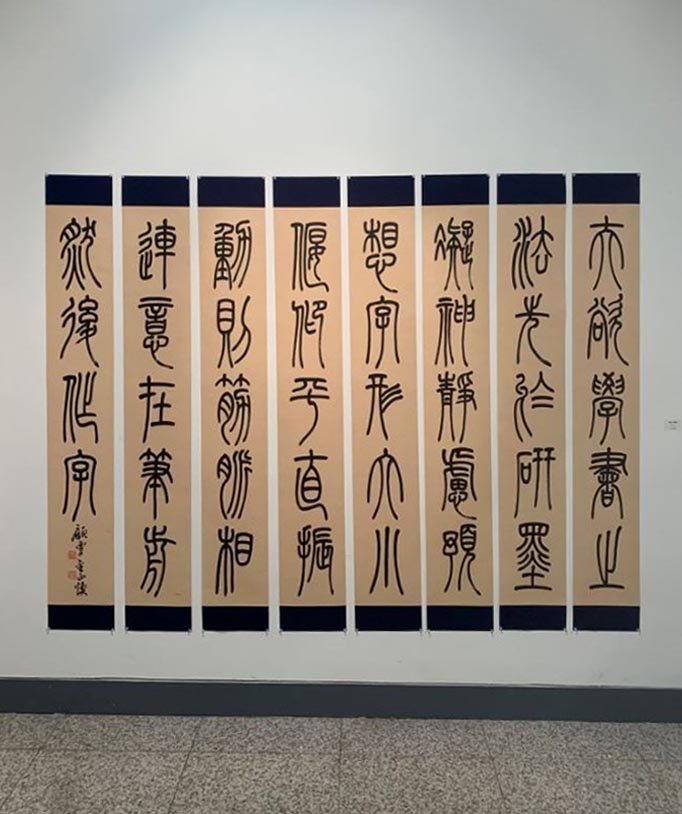 夫欲學書之
法先於研墨
凝神靜慮預
想字形大小
偃仰平直振
動則筋脈相
連意在筆前
然後作字